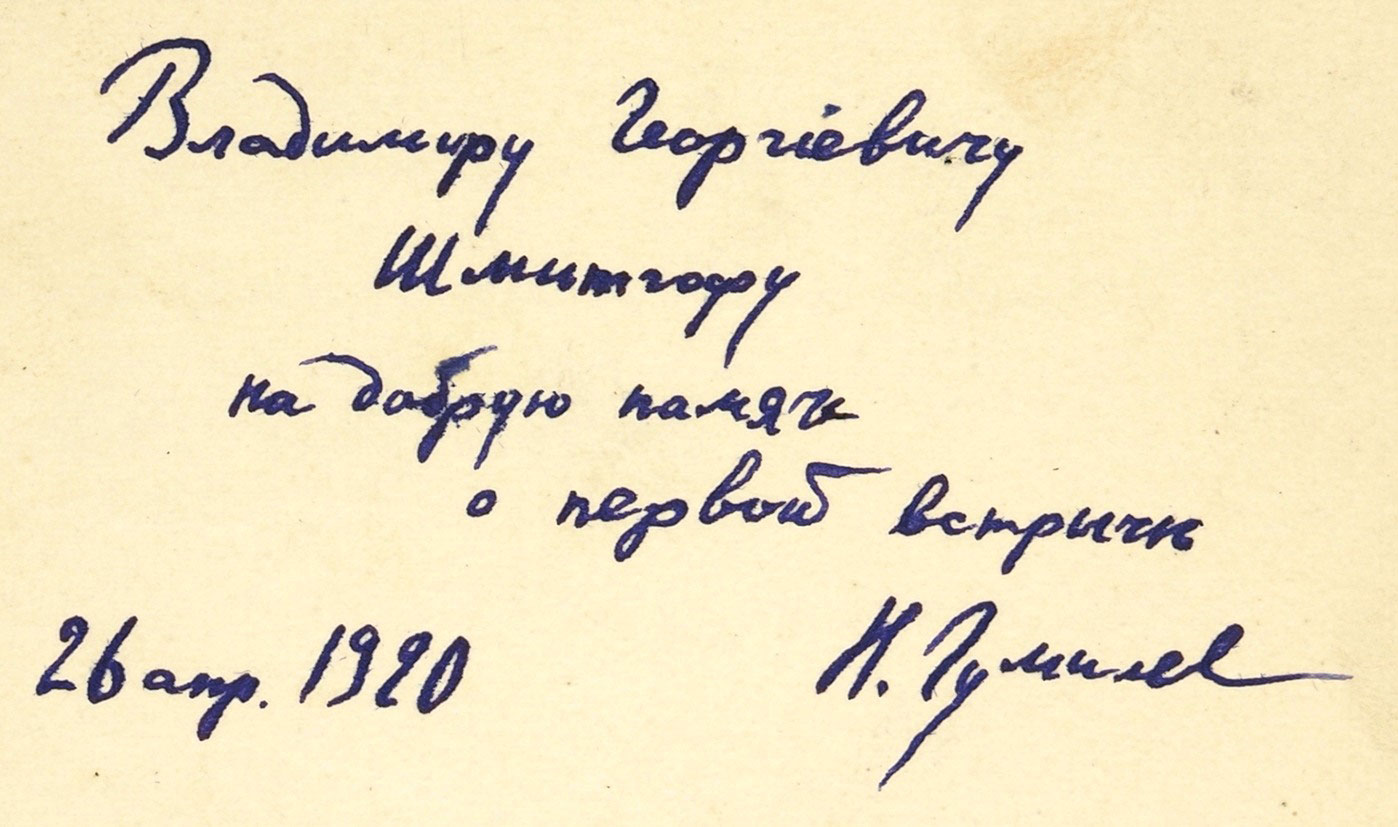 Владимиру Георгіевичу
Шмитгофу
на добрую память
о первой встрѣчѣ
26 апр. 1920 Н. Гумилев